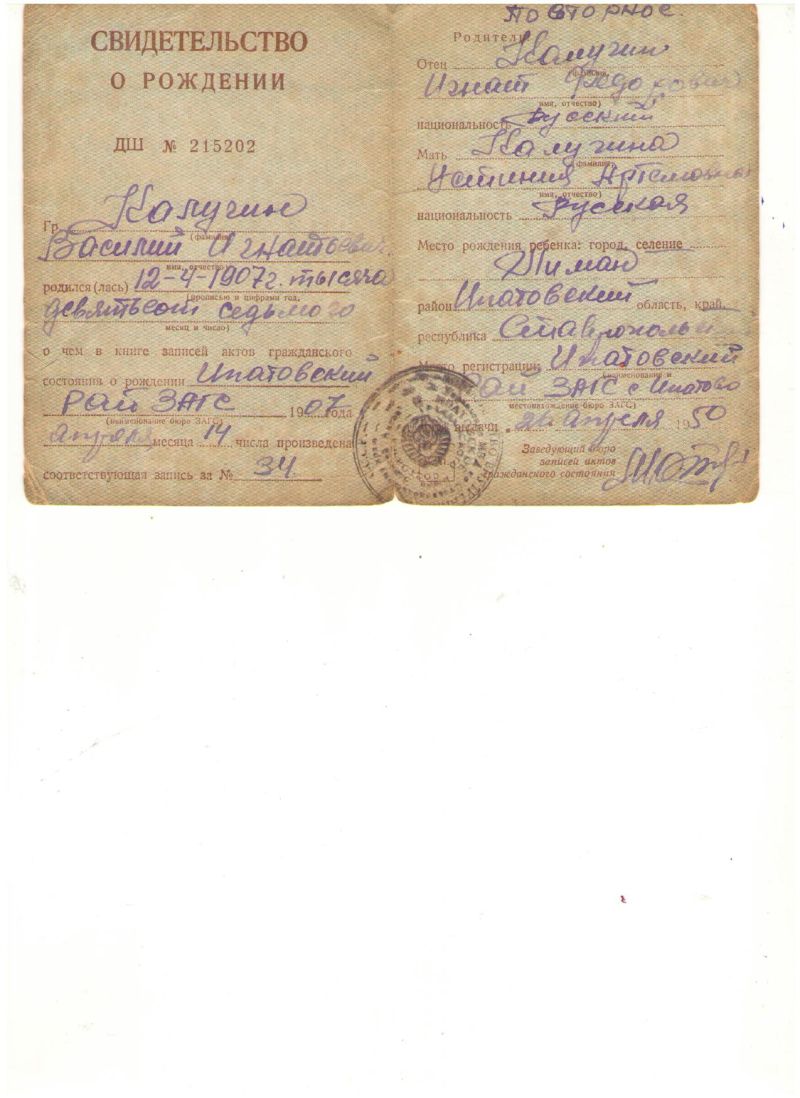 СВИДЕТЕЛЬСТВО
О РОЖДЕНИИ
ДШ № 215202
Гр. Калугин
(фамилия)
Василий Игнатьевич
имя, отчество
родился (лась) 12-4-1907 г. тысяча
(прописью и цифрами год,
девятьсот седьмого
месяц и число)
о чем в книге записей актов гражданского
состояния о рождении Ипатовский
Рай ЗАГС 1907 года
(наименование бюро ЗАГС)
апреля месяца 14 числа произведена
соответствующая запись за № 34
Повторное.
Родители
Отец Калугин
(фамилия,
Игнат Федорович
имя, отчество)
национальность Русский
Мать Калугина
фамилия,
Устиния Артемовна
имя, отчество)
национальность Русская
Место рождения ребенка: город, селение
район Ипатовский область, край,
республика
Место регистрации Ипатовский
(наименование и
Рай ЗАГС с Ипатово
местонахождение бюро ЗАГС)
выдачи апреля 1950
Заведующий бюро
записей актов
гражданского состояния